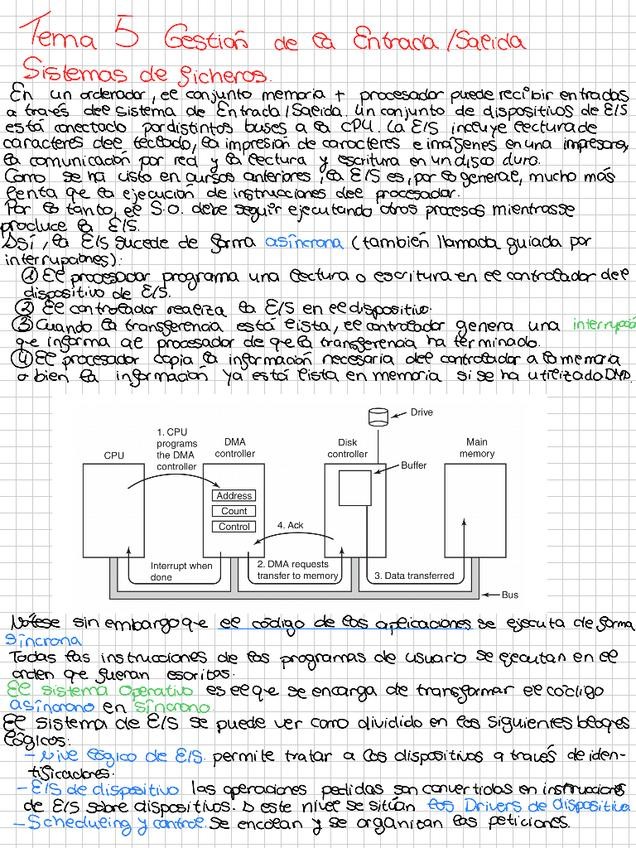 Tema 5 Gestión de la Entrada/Salida
Sistemas de ficheros.
En un ordenador, el conjunto memoria + procesador puede recibir entradas
a través del sistema de Entrada/Salida. Un conjunto de dispositivos de E/S
está conectado por distintos buses a la CPU. La E/S incluye lectura de
caracteres del teclado, la impresión de caracteres e imágenes en una impresora,
la comunicación por red y la lectura y escritura en un disco duro.
Como se ha visto en cursos anteriores, la E/S es, por lo general, mucho más
lenta que la ejecución de instrucciones del procesador.
Por lo tanto, el S.O. debe seguir ejecutando otros procesos mientras se
produce la E/S.
Así, la E/S sucede de forma asíncrona (también llamada guiada por
interrupciones):
① El procesador programa una lectura o escritura en el controlador del
dispositivo de E/S.
② El controlador realiza la E/S en el dispositivo.
③ Cuando la transferencia está lista, el controlador genera una interrupción
que informa al procesador de que la transferencia ha terminado.
④ El procesador copia la información necesaria del controlador a la memoria
o bien la información ya está lista en memoria si se ha utilizado DMA.
Drive
1. CPU
programs
the DMA
controller
CPU
DMA
controller
Disk
controller
Main
memory
Buffer
Address
Count
Control
4. Ack
Interrupt when
done
2. DMA requests
transfer to memory
3. Data transferred
Bus
Nótese sin embargo que el código de las aplicaciones se ejecuta de forma
síncrona
Todas las instrucciones de los programas de usuario se ejecutan en el
orden que fueran escritas.
El sistema Operativo es el que se encarga de transformar el código
asíncrono en síncrono.
El sistema de E/S se puede ver como dividido en los siguientes bloques
lógicos:
- Nivel lógico de E/S. permite tratar a los dispositivos a través de iden-
tificadores.
- E/S de dispositivo las operaciones pedidas son convertidas en instrucciones
de E/S sobre dispositivos. A este nivel se sitúan los Drivers de dispositivo
- Scheduling y control. Se encolan y se organizan las peticiones.